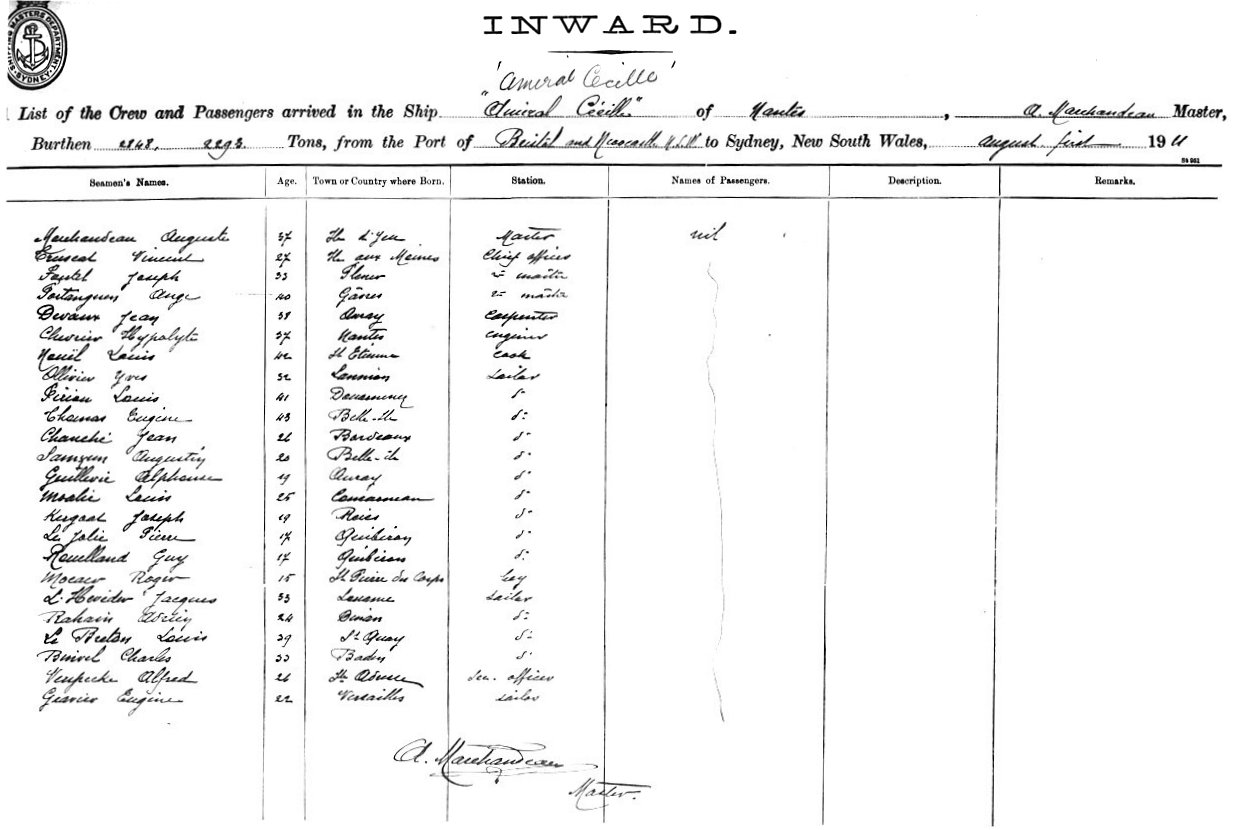 SHIPPING MASTERS DEPARTMENT. SYDNEY.
INWARD.
"Amiral Cécille"
List of the Crew and Passengers arrived in the Ship "Amiral Cécille" of Nantes, A. Marchandeau Master,
Burthen 2848. 2293 Tons, from the Port of Bristol and Newcastle N.S.W to Sydney, New South Wales, august first 1911
Seamen's Names. Age. Town or Country where Born. Station. Names of Passengers. Description. Remarks.
Marchandeau Auguste 37 Ile d'Yeu Master nil
Vincent 27 Ile aux Moines Chief officer
Joseph 33
Ange 40 Gâvres
Devaux Jean 38 Auray Carpenter
Chevrier Hypolyte 37 Nantes engineer
Louis 42 St Etienne Cook
Ollivier Yves 32 Lannion Sailor
Louis 41 Douarnenez d°
Thomas Eugène 43 Belle-Ile d°
Jean 26 Bordeaux d°
Samzun Augustin 20 Belle-ile d°
Guillevic Alphonse 19 Auray d°
Louis 25 Concarneau d°
Joseph 19 d°
Le Jolie Pierre 17 Quiberon d°
Rouelland Guy 17 Quiberon d°
Roger 15 St Pierre des Corps boy
Jacques 33 sailor
24 Dinan d°
Le Breton Louis 39 St Quay d°
Charles 33 Baden d°
Alfred 26 officer
Gravier Eugène 22 Versailles sailor
A. Marchandeau
Master.